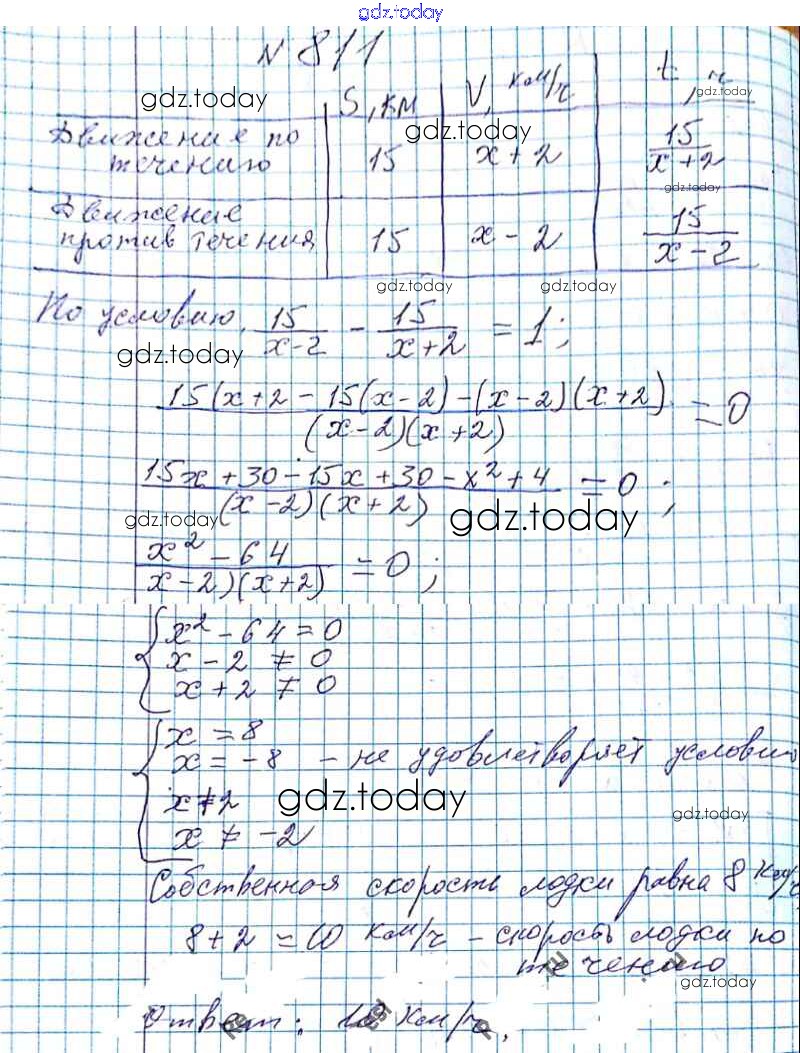 gdz.today
N 811
gdz.today
S, км V, км/ч t, ч
gdz.today
Движение по течению 15 x + 2 15/(x + 2)
gdz.today
Движение против течения 15 x - 2 15/(x - 2)
gdz.today gdz.today
По условию, 15/(x-2) - 15/(x+2) = 1;
gdz.today
15(x+2 - 15(x-2) - (x-2)(x+2) / (x-2)(x+2) = 0
15x + 30 - 15x + 30 - x² + 4 / (x-2)(x+2) = 0;
gdz.today gdz.today
x² - 64 / x-2)(x+2) = 0;
x² - 64 = 0
x - 2 ≠ 0
x + 2 ≠ 0
x = 8
x = -8 - не удовлетворяет условию
x ≠ 2
gdz.today
gdz.today
x ≠ -2
Собственная скорость лодки равна 8 км/ч.
8 + 2 = 10 км/ч - скорость лодки по
течению
gdz.today
Ответ: 10 км/ч.